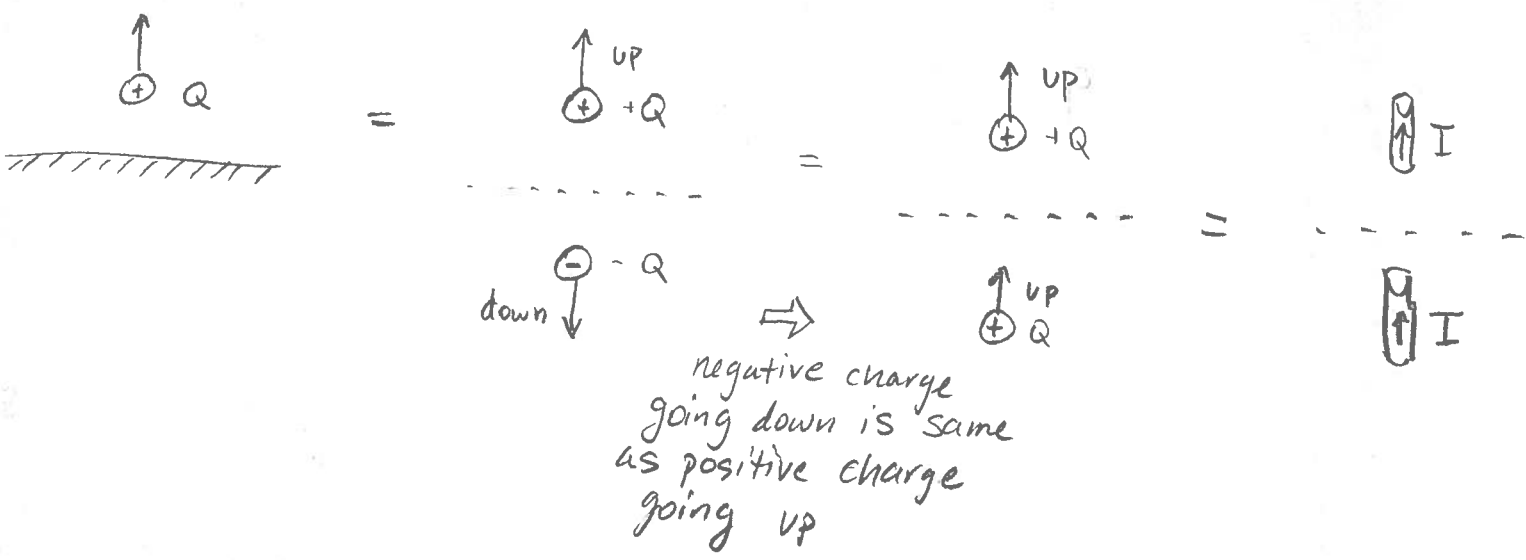 + Q
=
up
+ +Q
- -Q
down
⇒
=
up
+ +Q
up
+ Q
=
I
I
negative charge
going down is same
as positive charge
going up